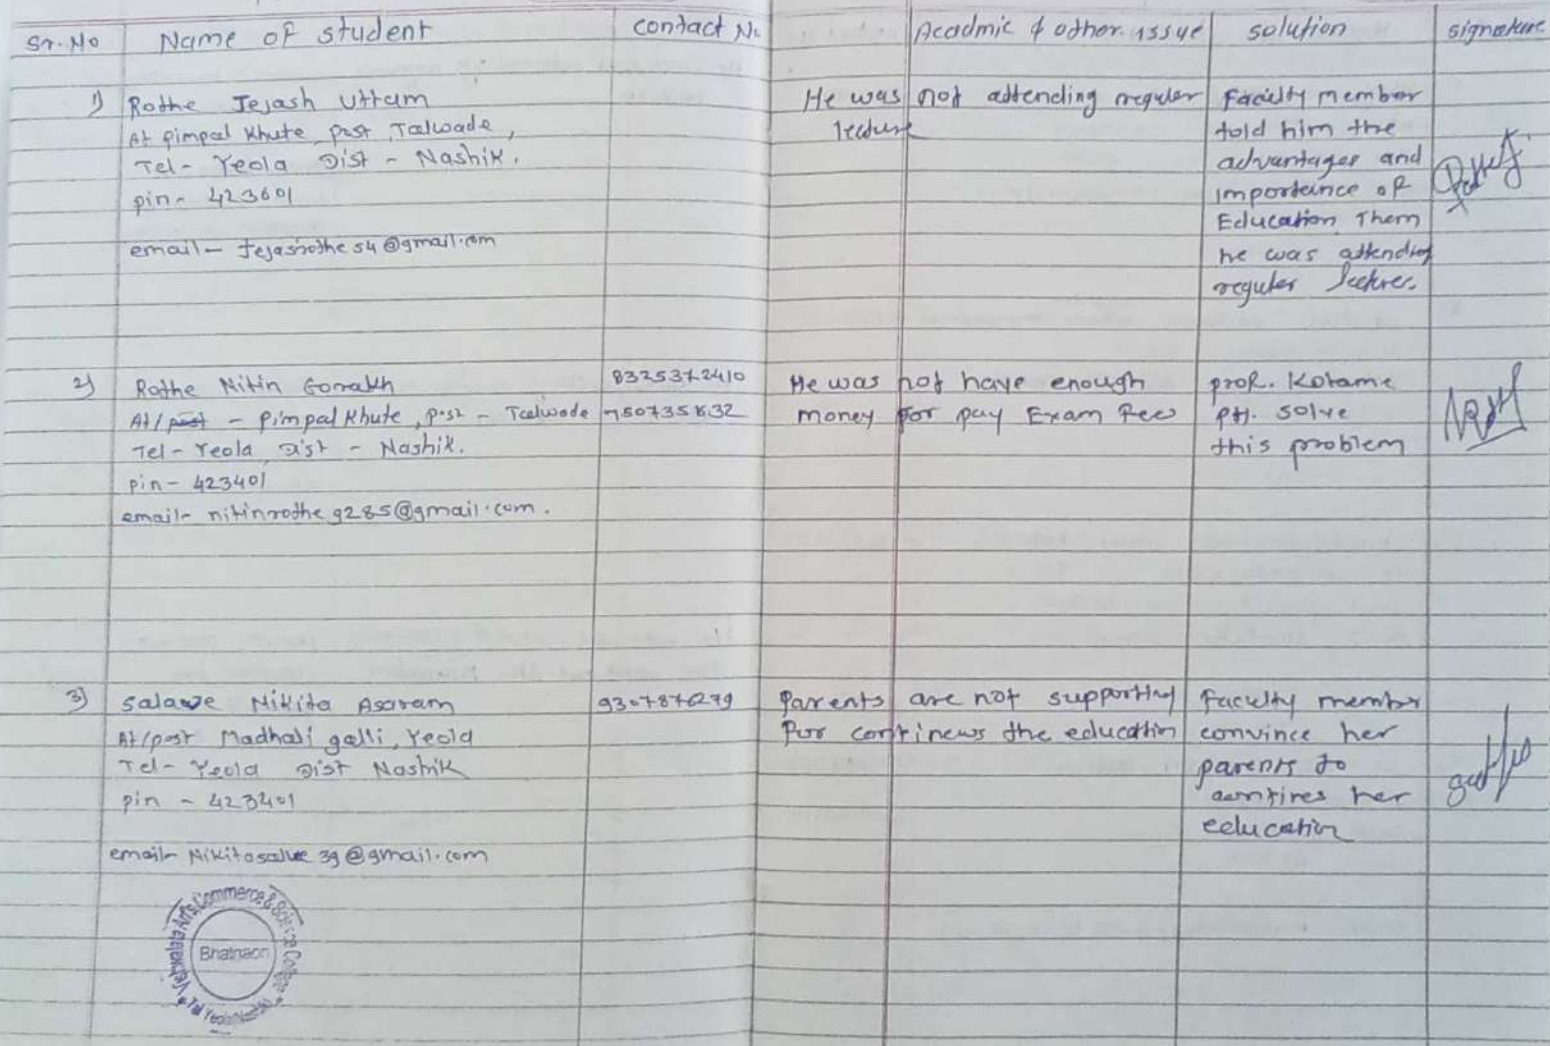 Sr. No Name of student contact No Acadmic & other issue solution signature
1) Rothe Tejash Uttam
At pimpal Khute post Talwade,
Tel - Yeola Dist - Nashik.
pin - 423601
email - tejasrothe54@gmail.com
He was not attending reguler
lecture
Faculty member
told him the
advantages and
importance of
Education Them
he was attending
reguler
2) Rothe Nitin Gorakh
At/post - Pimpal Khute, Post - Talwade
Tel - Yeola Dist - Nashik.
pin - 423401
email - nitinrothe9285@gmail.com.
He was not have enough
money for pay Exam fees
prof. Kotame
solve
this problem
3) Salave Nikita Asaram
At/post Madhali galli, Yeola
Tel - Yeola Dist Nashik
pin - 423401
email - Nikitasalve39@gmail.com
Parents are not supporting
for continews the education
faculty member
convince her
parents to
her
education
Arts, Commerce & Science College
Tal Yeola (Nashik)